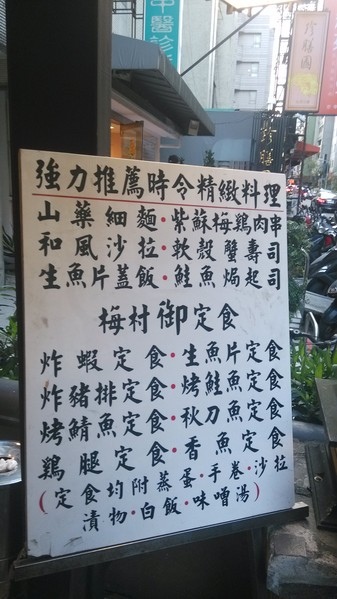 中醫診
珍膳園
珍膳
強力推薦時令精緻料理
山藥細麵·紫蘇梅鷄肉串
和風沙拉·軟殼蟹壽司
生魚片蓋飯·鮭魚焗起司
梅村御定食
炸蝦定食·生魚片定食
炸豬排定食·烤鮭魚定食
烤鯖魚定食·秋刀魚定食
鷄腿定食·香魚定食
(定食均附蒸蛋·手卷·沙拉
漬物·白飯·味噌湯)